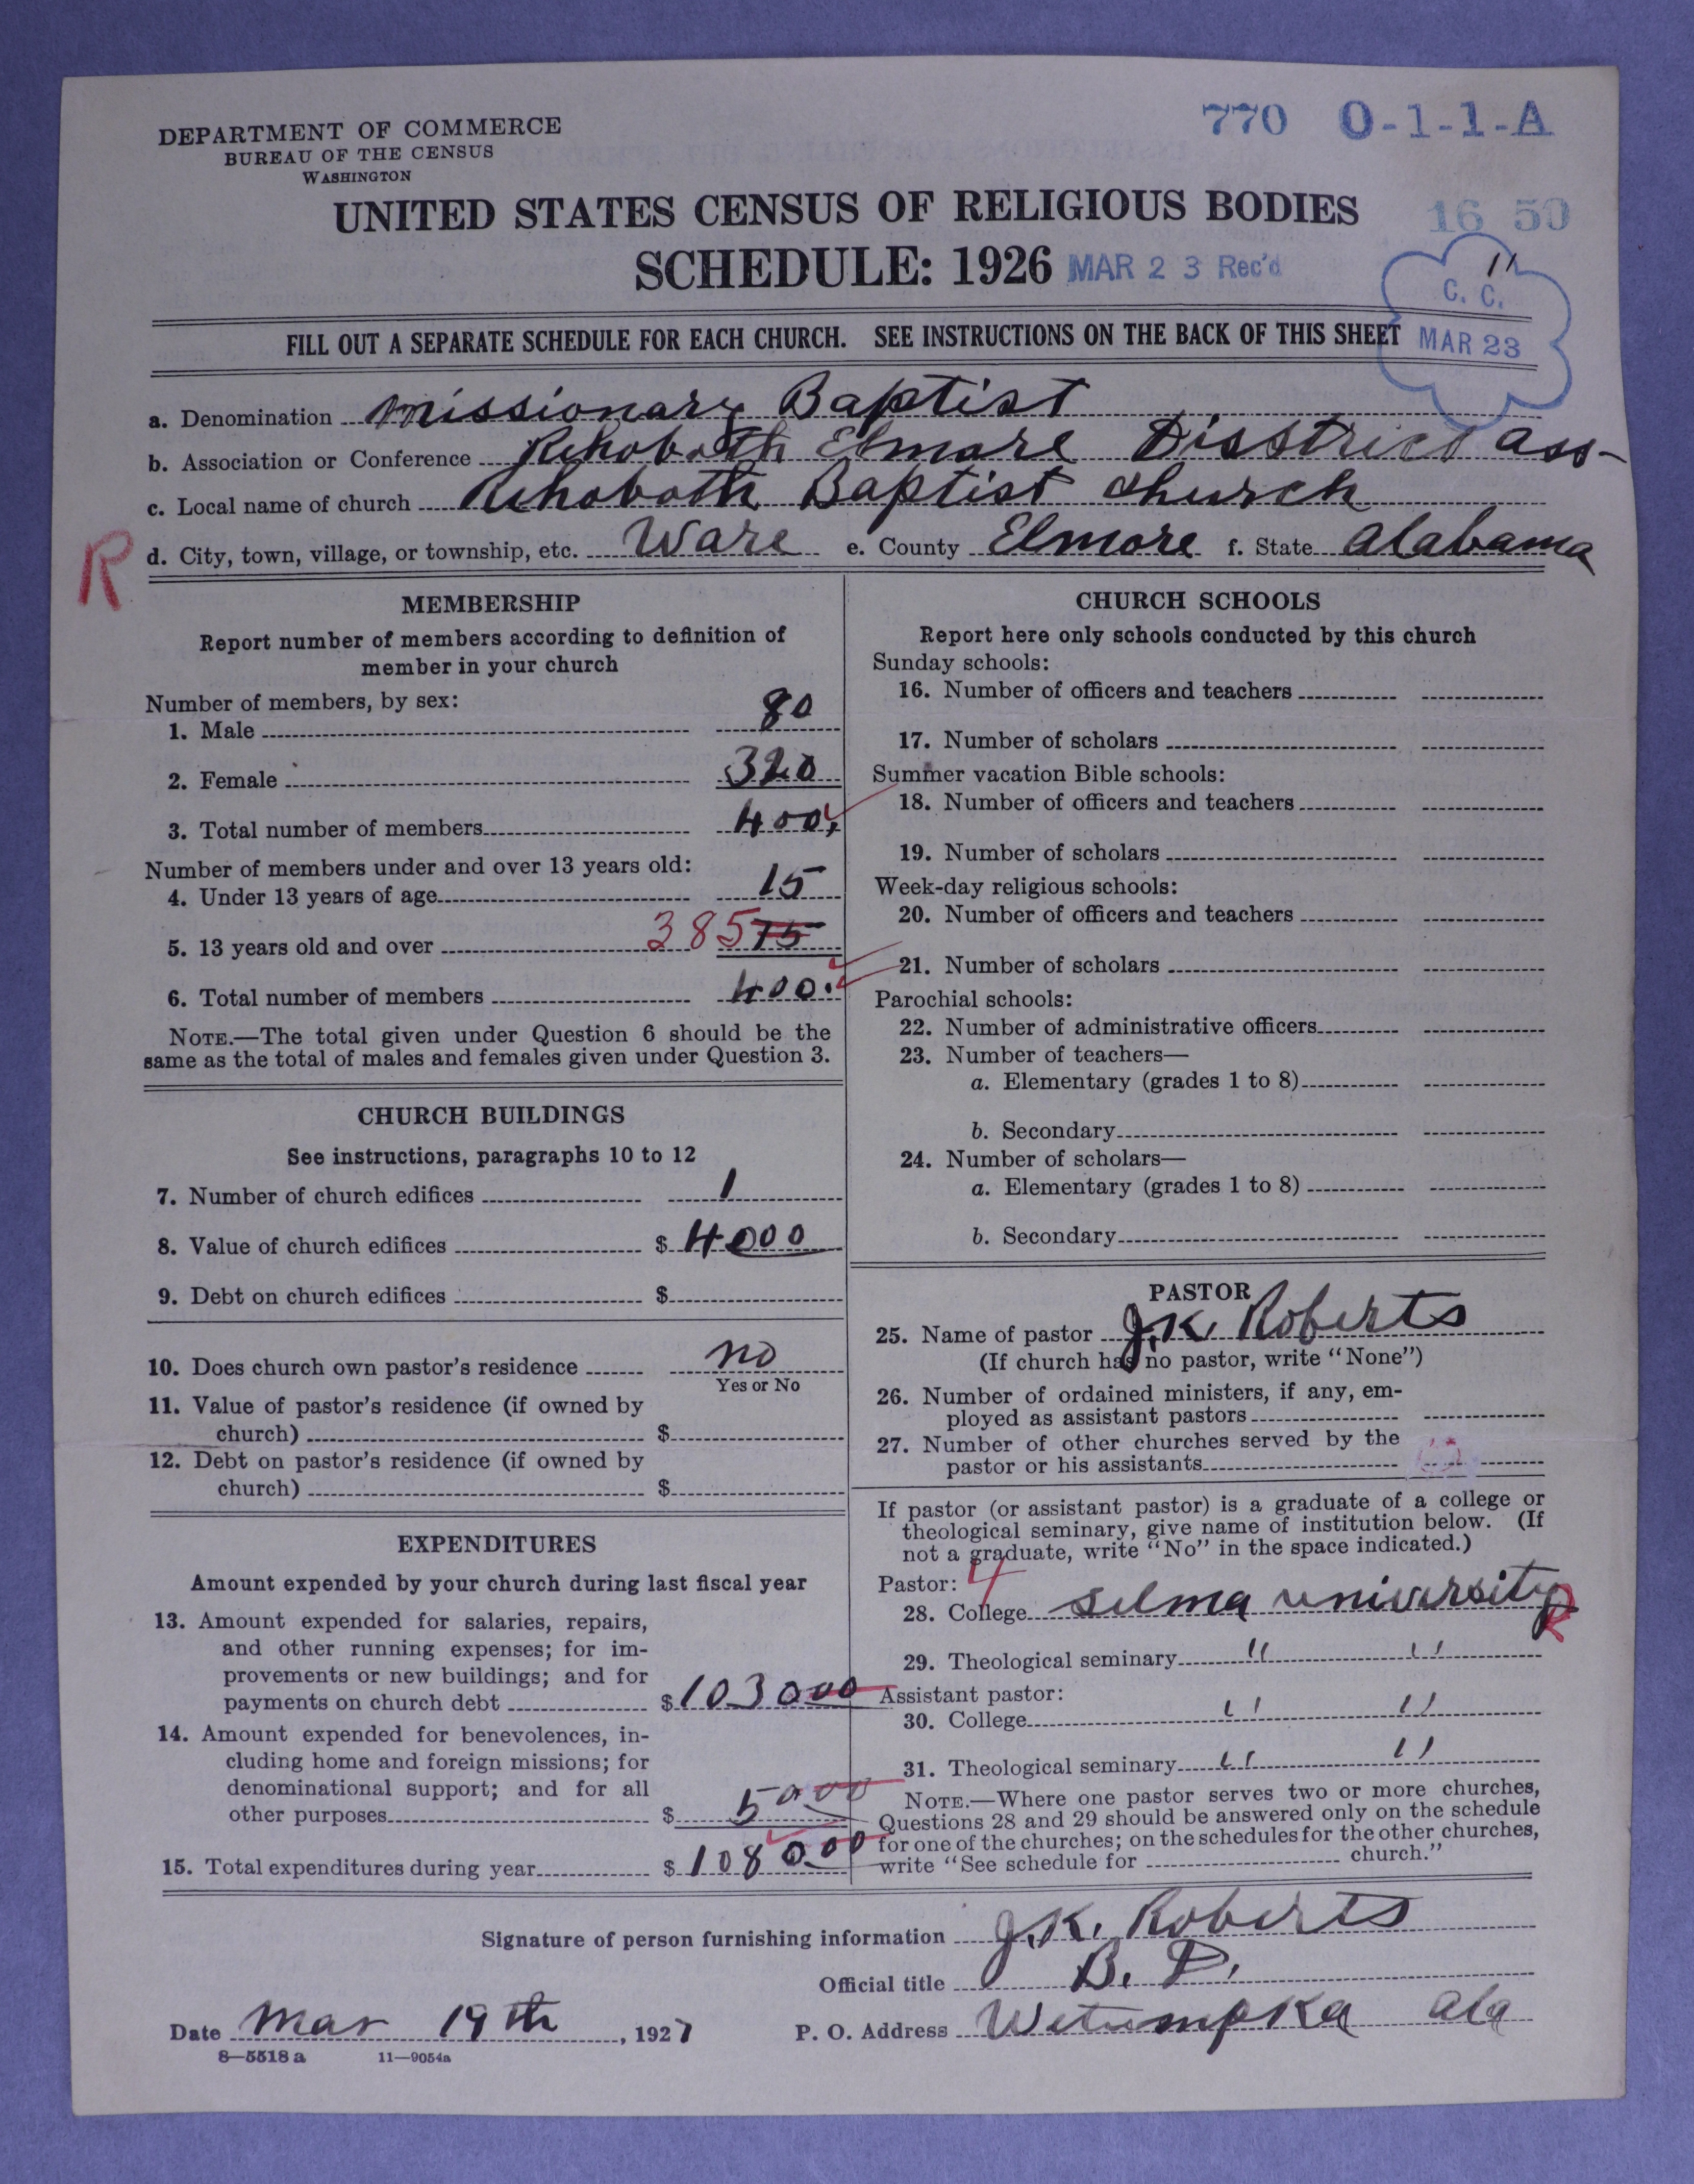 DEPARTMENT OF COMMERCE
BUREAU OF THE CENSUS
WASHINGTON
770 O-1-1-A
UNITED STATES CENSUS OF RELIGIOUS BODIES
16 50
SCHEDULE: 1926 MAR 23 Rec'd
11
C. C.
MAR 23
FILL OUT A SEPARATE SCHEDULE FOR EACH CHURCH. SEE INSTRUCTIONS ON THE BACK OF THIS SHEET
a. Denomination Missionary Baptist
b. Association or Conference Rehoboth Elmore Disstrict ass-
c. Local name of church Rehoboth Baptist church
R
d. City, town, village, or township, etc. Ware e. County Elmore f. State Alabama
MEMBERSHIP
Report number of members according to definition of
member in your church
Number of members, by sex:
1. Male 80
2. Female 320
3. Total number of members 400
Number of members under and over 13 years old:
4. Under 13 years of age 15
5. 13 years old and over 385 75
6. Total number of members 400
NOTE.—The total given under Question 6 should be the
same as the total of males and females given under Question 3.
CHURCH BUILDINGS
See instructions, paragraphs 10 to 12
7. Number of church edifices 1
8. Value of church edifices $ 4000
9. Debt on church edifices $
10. Does church own pastor's residence no
Yes or No
11. Value of pastor's residence (if owned by
church) $
12. Debt on pastor's residence (if owned by
church) $
EXPENDITURES
Amount expended by your church during last fiscal year
13. Amount expended for salaries, repairs,
and other running expenses; for im-
provements or new buildings; and for
payments on church debt $ 103000
14. Amount expended for benevolences, in-
cluding home and foreign missions; for
denominational support; and for all
other purposes $ 5000
15. Total expenditures during year $ 108000
CHURCH SCHOOLS
Report here only schools conducted by this church
Sunday schools:
16. Number of officers and teachers
17. Number of scholars
Summer vacation Bible schools:
18. Number of officers and teachers
19. Number of scholars
Week-day religious schools:
20. Number of officers and teachers
21. Number of scholars
Parochial schools:
22. Number of administrative officers
23. Number of teachers—
a. Elementary (grades 1 to 8)
b. Secondary
24. Number of scholars—
a. Elementary (grades 1 to 8)
b. Secondary
PASTOR
25. Name of pastor J.K. Roberts
(If church has no pastor, write "None")
26. Number of ordained ministers, if any, em-
ployed as assistant pastors
27. Number of other churches served by the
pastor or his assistants
If pastor (or assistant pastor) is a graduate of a college or
theological seminary, give name of institution below. (If
not a graduate, write "No" in the space indicated.)
Pastor: 4
28. College selma university R
29. Theological seminary " "
Assistant pastor:
30. College " "
31. Theological seminary " "
NOTE.—Where one pastor serves two or more churches,
Questions 28 and 29 should be answered only on the schedule
for one of the churches; on the schedules for the other churches,
write "See schedule for church."
Signature of person furnishing information J.K. Roberts
Official title B. D.
Date Mar 19th, 1927 P. O. Address Wetumpka Ala
8—5518 a 11—9054a